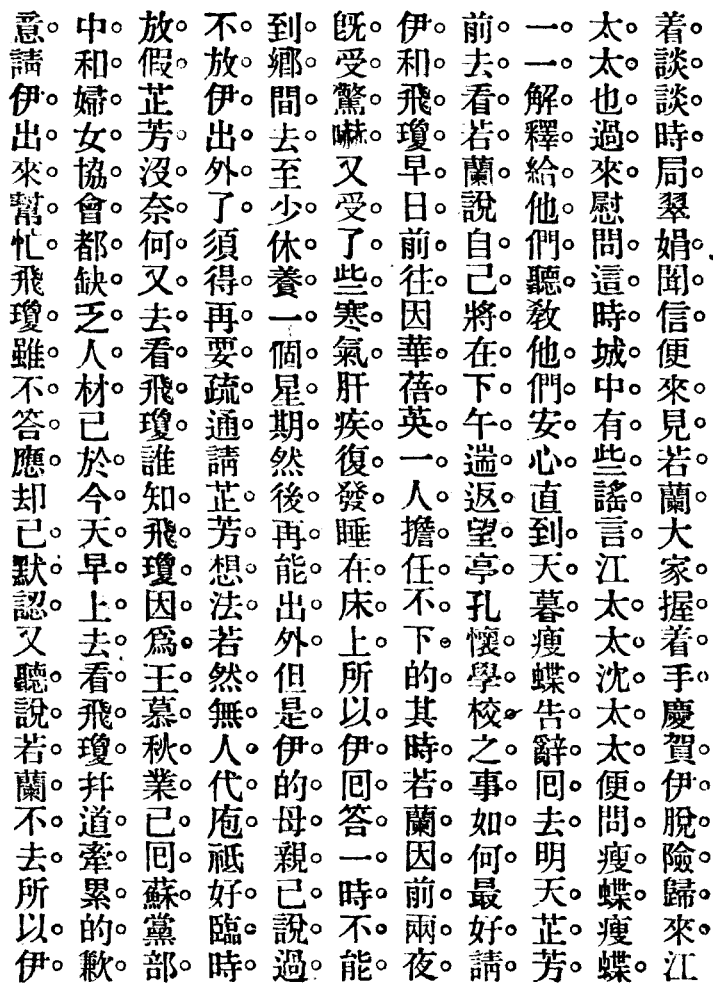 着談談時局翠娟聞信便來見若蘭大家握着手慶賀伊脫險歸來江
太太也過來慰問這時城中有些謠言江太太沈太太便問瘦蝶瘦蝶
一一解釋給他們聽敎他們安心直到天暮瘦蝶告辭囘去明天芷芳
前去看若蘭說自己將在下午遄返望亭孔懷學校之事如何最好請
伊和飛瓊早日前往因華蓓英一人擔任不下的其時若蘭因前兩夜
旣受驚嚇又受了些寒氣肝疾復發睡在床上所以伊囘答一時不能
到鄉間去至少休養一個星期然後再能出外但是伊的母親已說過
不放伊出外了須得再要疏通請芷芳想法若然無人代庖祗好臨時
放假芷芳沒奈何又去看飛瓊誰知飛瓊因爲王慕秋業已囘蘇黨部
中和婦女協會都缺乏人材已於今天早上去看飛瓊幷道牽累的歉
意請伊出來幫忙飛瓊雖不答應却已默認又聽說若蘭不去所以伊